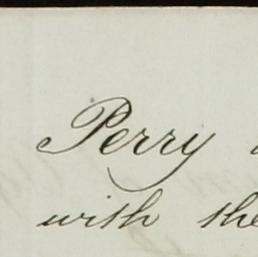 Perry
with the